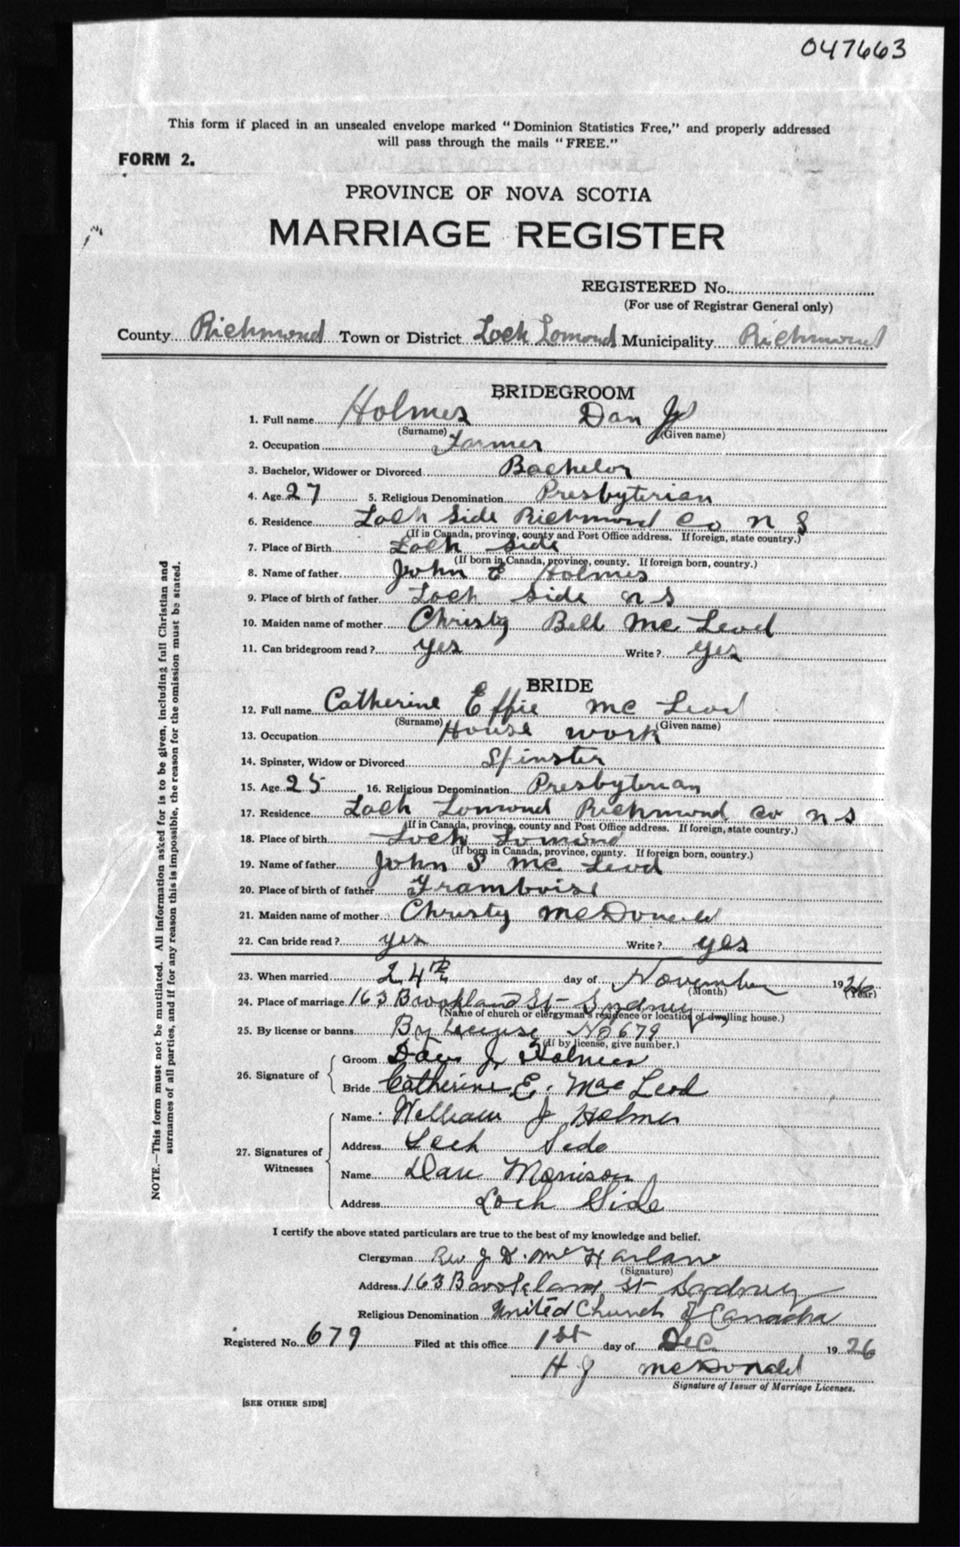 047663
This form if placed in an unsealed envelope marked "Dominion Statistics Free," and properly addressed
will pass through the mails "FREE."
FORM 2.
PROVINCE OF NOVA SCOTIA
MARRIAGE REGISTER
REGISTERED No.
(For use of Registrar General only)
County Richmond Town or District Loch Lomond Municipality Richmond
BRIDEGROOM
1. Full name Holmes Dan J
(Surname) (Given name)
2. Occupation Farmer
3. Bachelor, Widower or Divorced Bachelor
4. Age 27 5. Religious Denomination Presbyterian
6. Residence Loch Side Richmond Co N S
(If in Canada, province, county and Post Office address. If foreign, state country.)
7. Place of Birth Loch Side
(If born in Canada, province, county. If foreign born, country.)
8. Name of father John E Holmes
9. Place of birth of father Loch Side N S
10. Maiden name of mother Christy Bell Mc Leod
11. Can bridegroom read? yes Write? yes
BRIDE
12. Full name Catherine Effie Mc Leod
(Surname) (Given name)
13. Occupation House work
14. Spinster, Widow or Divorced Spinster
15. Age 25 16. Religious Denomination Presbyterian
17. Residence Loch Lomond Richmond Co N S
(If in Canada, province, county and Post Office address. If foreign, state country.)
18. Place of birth Loch Lomond
(If born in Canada, province, county. If foreign born, country.)
19. Name of father John S Mc Leod
20. Place of birth of father Framboise
21. Maiden name of mother Christy McDonald
22. Can bride read? yes Write? yes
23. When married 24th day of November 1926
(Month) (Year)
24. Place of marriage 163 Brookland St - Sydney
(Name of church or clergyman's residence or location of dwelling house.)
25. By license or banns By License No 679
(If by license, give number.)
26. Signature of Groom Dan J. Holmes
Bride Catherine E. Mac Leod
27. Signatures of Witnesses
Name William J Holmes
Address Loch Side
Name Dan Morrison
Address Loch Side
I certify the above stated particulars are true to the best of my knowledge and belief.
Clergyman Rev J. D. McHarlan
(Signature)
Address 163 Brookland St - Sydney
Religious Denomination United Church of Canada
Registered No. 679 Filed at this office 1st day of Dec 1926
H J McDonald
Signature of Issuer of Marriage Licenses.
[SEE OTHER SIDE]
NOTE.—This form must not be mutilated. All information asked for is to be given, including full Christian and
surnames of all parties, and if for any reason this is impossible, the reason for the omission must be stated.